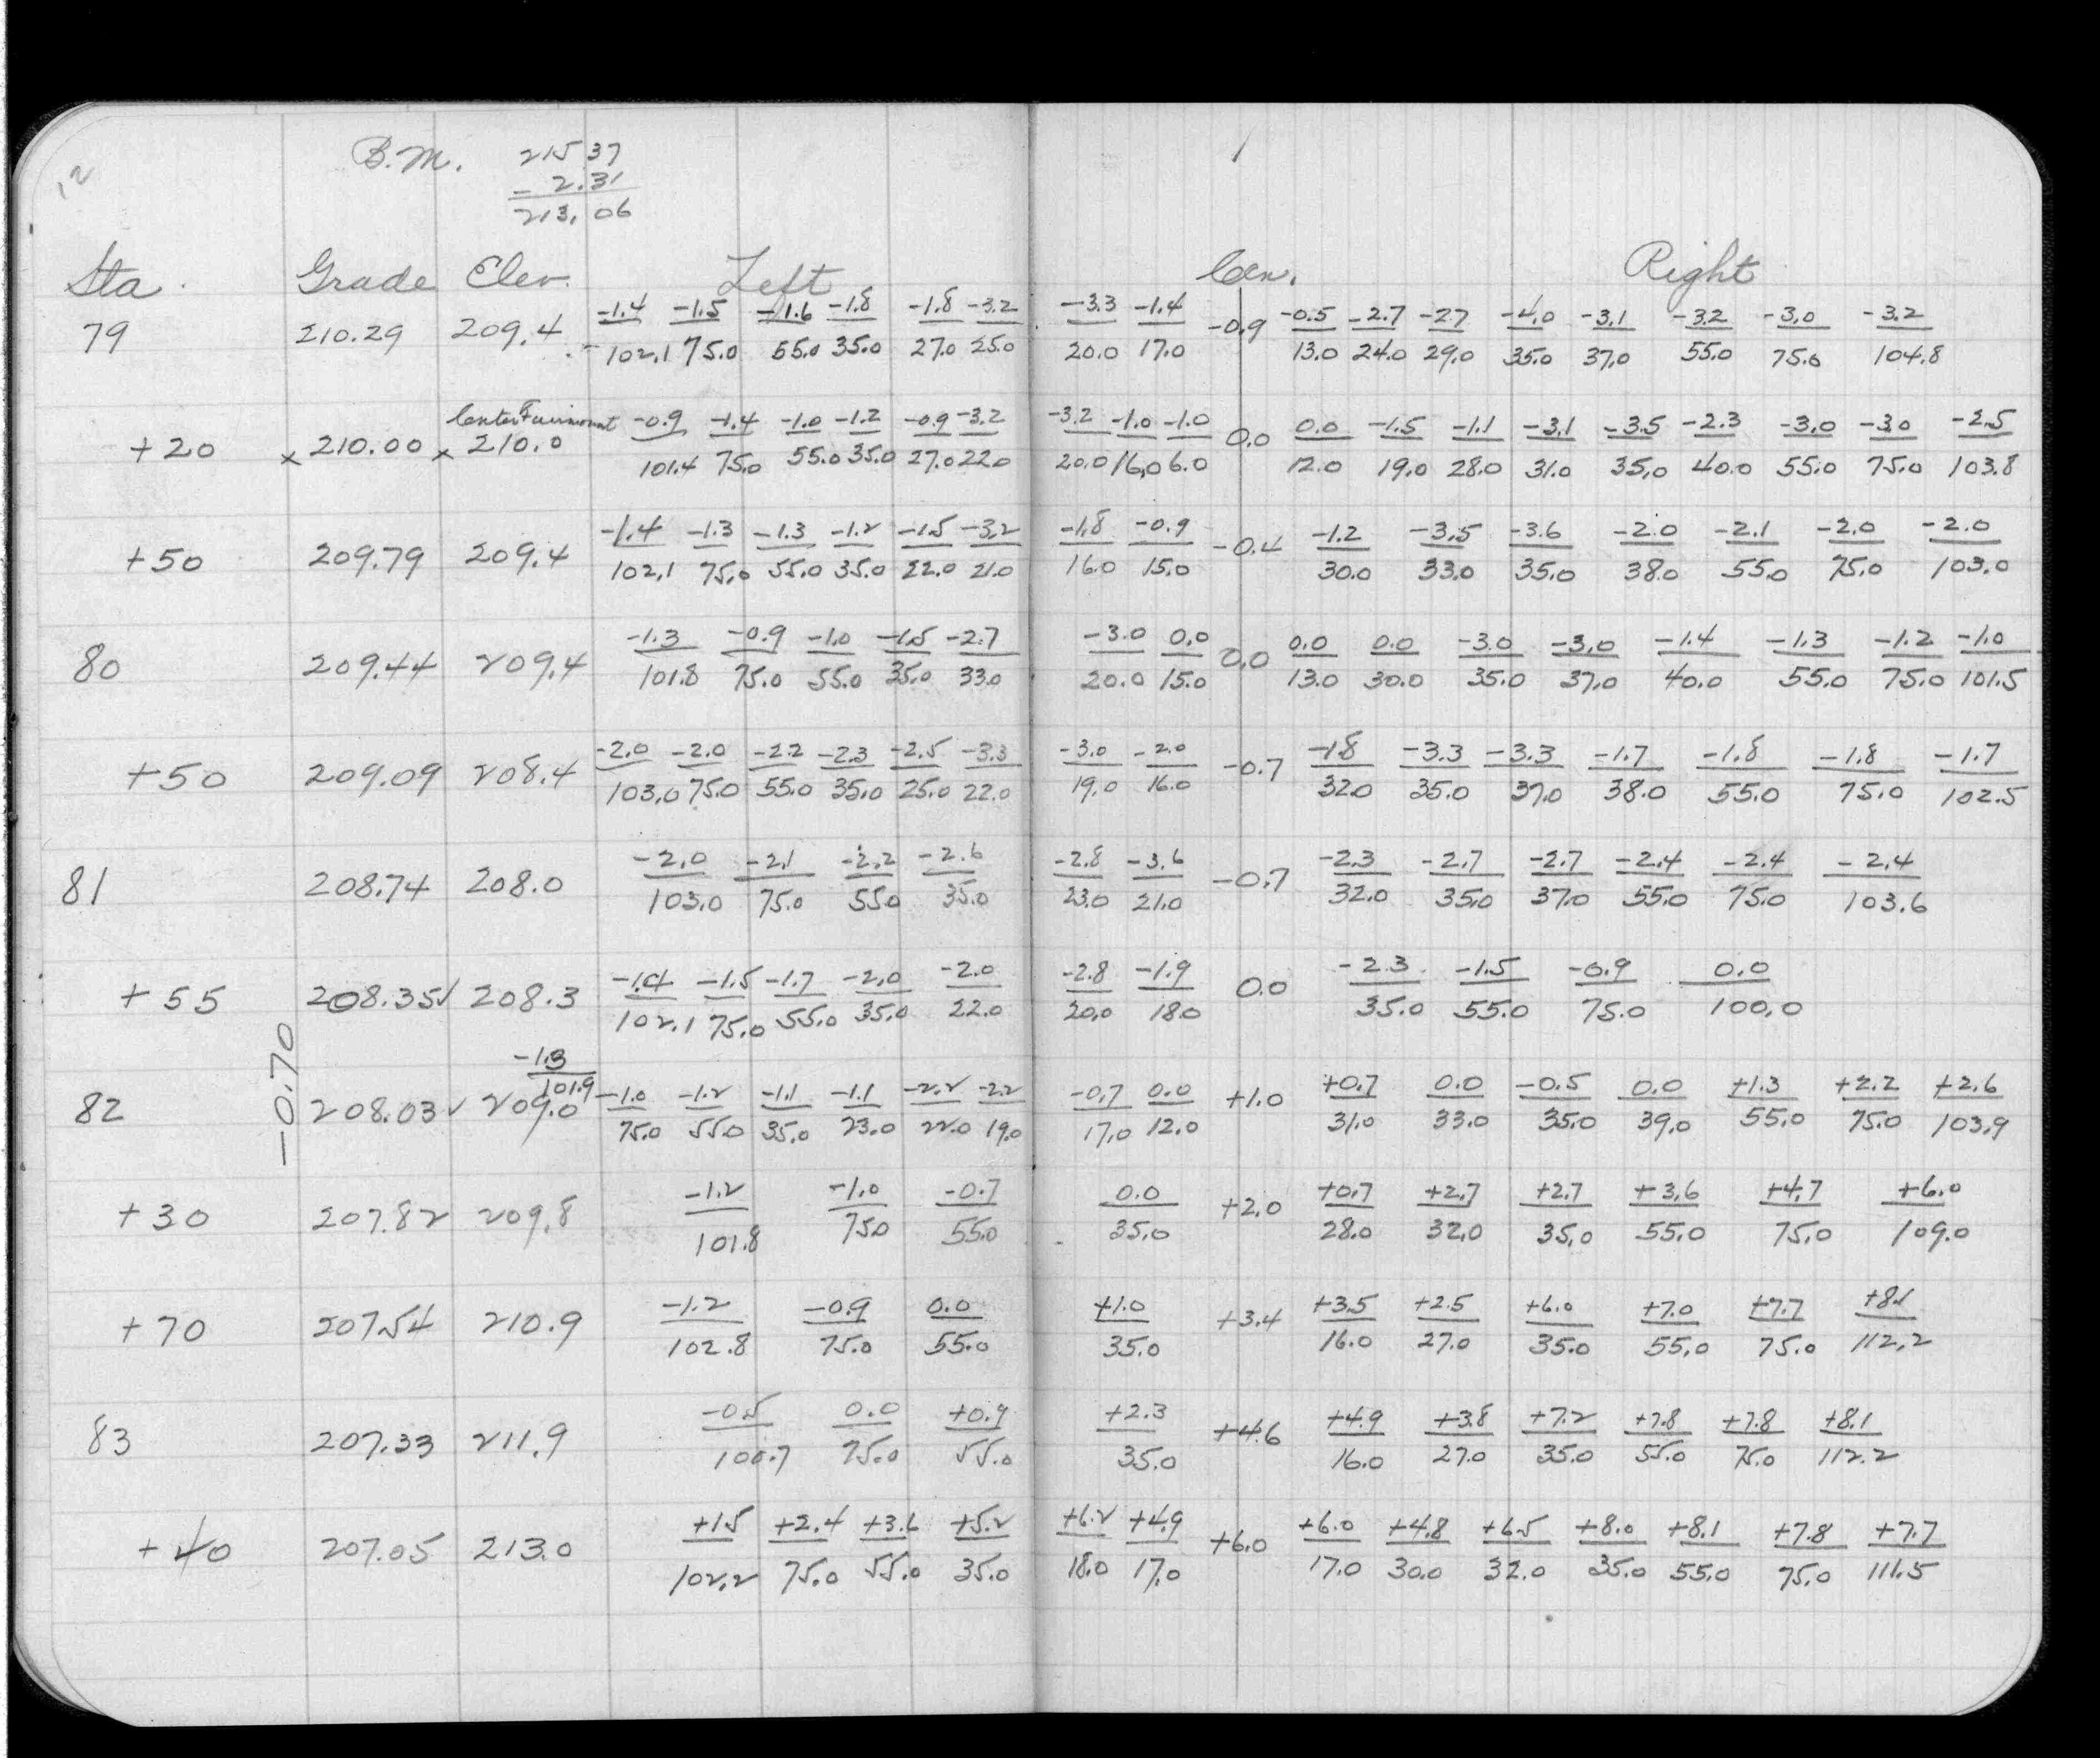 12
B.M. 215 37
- 2.31
213.06
Sta. Grade Elev. Left Cen. Right
-1.4 -1.5 -1.6 -1.8 -1.8 -3.2 -3.3 -1.4 -0.5 -2.7 -2.7 -4.0 -3.1 -3.2 -3.0 -3.2
79 210.29 209.4 -0.9
102.1 75.0 55.0 35.0 27.0 25.0 20.0 17.0 13.0 24.0 29.0 35.0 37.0 55.0 75.0 104.8
Center Fairmount -0.9 -1.4 -1.0 -1.2 -0.9 -3.2 -3.2 -1.0 -1.0 0.0 -1.5 -1.1 -3.1 -3.5 -2.3 -3.0 -3.0 -2.5
+20 x 210.00 x 210.0 0.0
101.4 75.0 55.0 35.0 27.0 22.0 20.0 16.0 6.0 12.0 19.0 28.0 31.0 35.0 40.0 55.0 75.0 103.8
-1.4 -1.3 -1.3 -1.2 -1.5 -3.2 -1.8 -0.9 -1.2 -3.5 -3.6 -2.0 -2.1 -2.0 -2.0
+50 209.79 209.4 -0.4
102.1 75.0 55.0 35.0 22.0 21.0 16.0 15.0 30.0 33.0 35.0 38.0 55.0 75.0 103.0
-1.3 -0.9 -1.0 -1.5 -2.7 -3.0 0.0 0.0 0.0 -3.0 -3.0 -1.4 -1.3 -1.2 -1.0
80 209.44 209.4 0.0
101.8 75.0 55.0 35.0 33.0 20.0 15.0 13.0 30.0 35.0 37.0 40.0 55.0 75.0 101.5
-2.0 -2.0 -2.2 -2.3 -2.5 -3.3 -3.0 -2.0 -1.8 -3.3 -3.3 -1.7 -1.8 -1.8 -1.7
+50 209.09 208.4 -0.7
103.0 75.0 55.0 35.0 25.0 22.0 19.0 16.0 32.0 35.0 37.0 38.0 55.0 75.0 102.5
-2.0 -2.1 -2.2 -2.6 -2.8 -3.6 -2.3 -2.7 -2.7 -2.4 -2.4 -2.4
81 208.74 208.0 -0.7
103.0 75.0 55.0 35.0 23.0 21.0 32.0 35.0 37.0 55.0 75.0 103.6
-1.4 -1.5 -1.7 -2.0 -2.0 -2.8 -1.9 -2.3 -1.5 -0.9 0.0
+55 208.35✓ 208.3 0.0
102.1 75.0 55.0 35.0 22.0 20.0 18.0 35.0 55.0 75.0 100.0
-0.70
-1.3
101.9
-1.0 -1.2 -1.1 -1.1 -2.2 -2.2 -0.7 0.0 +0.7 0.0 -0.5 0.0 +1.3 +2.2 +2.6
82 208.03✓ 209.0 +1.0
75.0 55.0 35.0 23.0 22.0 19.0 17.0 12.0 31.0 33.0 35.0 39.0 55.0 75.0 103.9
-1.2 -1.0 -0.7 0.0 +0.7 +2.7 +2.7 +3.6 +4.7 +6.0
+30 207.82 209.8 +2.0
101.8 75.0 55.0 35.0 28.0 32.0 35.0 55.0 75.0 109.0
-1.2 -0.9 0.0 +1.0 +3.5 +2.5 +6.0 +7.0 +7.7 +8.1
+70 207.54 210.9 +3.4
102.8 75.0 55.0 35.0 16.0 27.0 35.0 55.0 75.0 112.2
-0.5 0.0 +0.9 +2.3 +4.9 +3.8 +7.2 +7.8 +7.8 +8.1
83 207.33 211.9 +4.6
100.7 75.0 55.0 35.0 16.0 27.0 35.0 55.0 75.0 112.2
+1.5 +2.4 +3.6 +5.2 +6.2 +4.9 +6.0 +4.8 +6.5 +8.0 +8.1 +7.8 +7.7
+40 207.05 213.0 +6.0
102.2 75.0 55.0 35.0 18.0 17.0 17.0 30.0 32.0 35.0 55.0 75.0 111.5